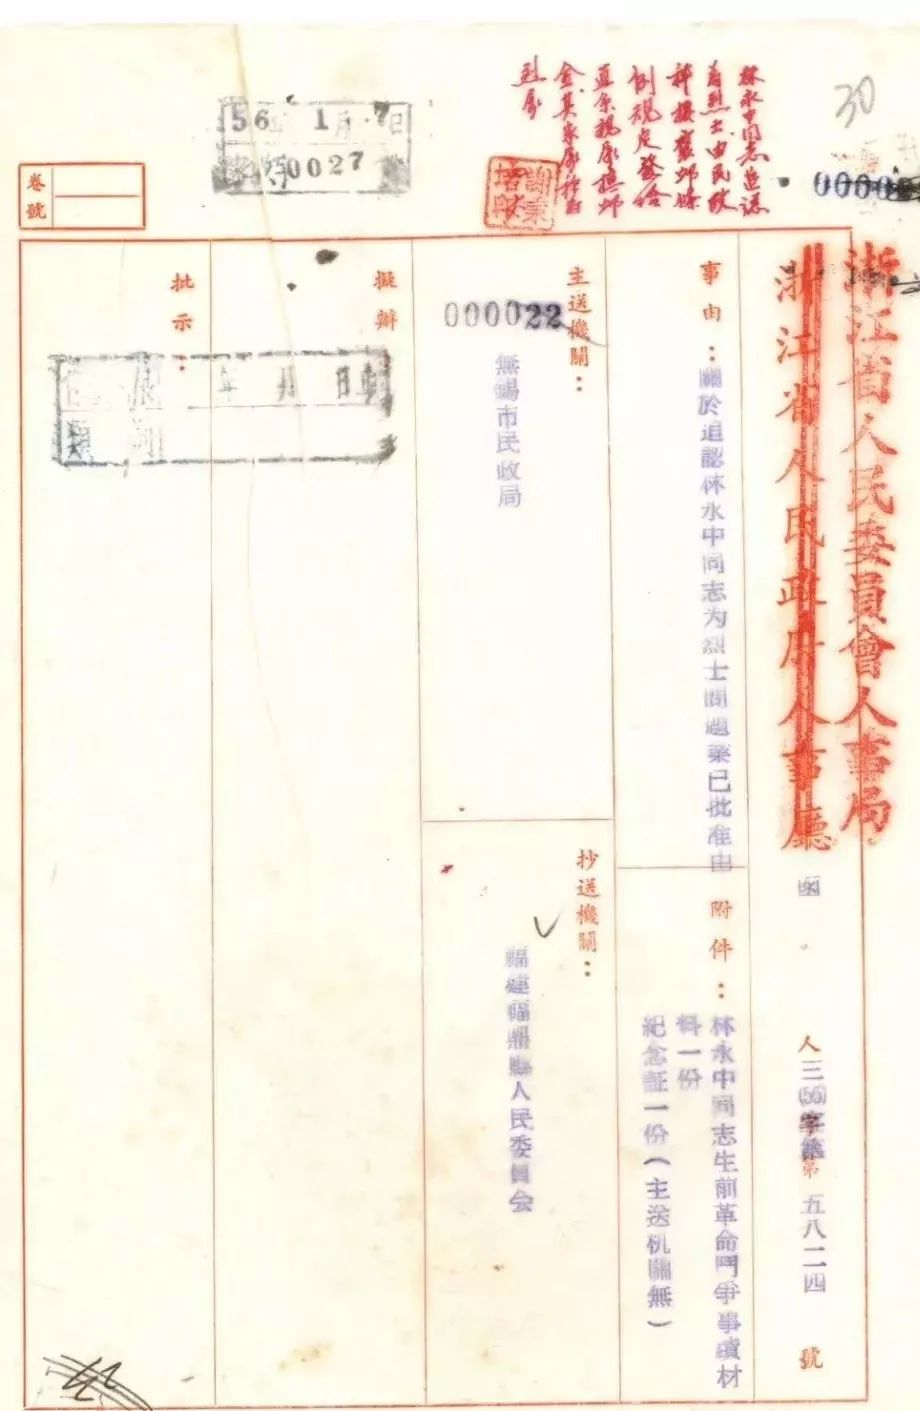 30
0000
林永中同志追認
為烈士，由民政
科按舊郵條
例規定發給
直系親屬撫邮
金，其家屬称為
烈屬
謝秉培印
56年1月7日
0027
卷號
浙江省人民委員會人事局
浙江省人民政府人事廳 函
人三(55)字第 第五八二四 號
事由：關於追認林永中同志为烈士問題業已批准由
附件：林永中同志生前革命鬥爭事蹟材
料一份
紀念証一份(主送机關無)
主送機關：
000022
無錫市民政局
抄送機關：
福建福鼎縣人民委員会
擬辦：
批示：
年 月 日